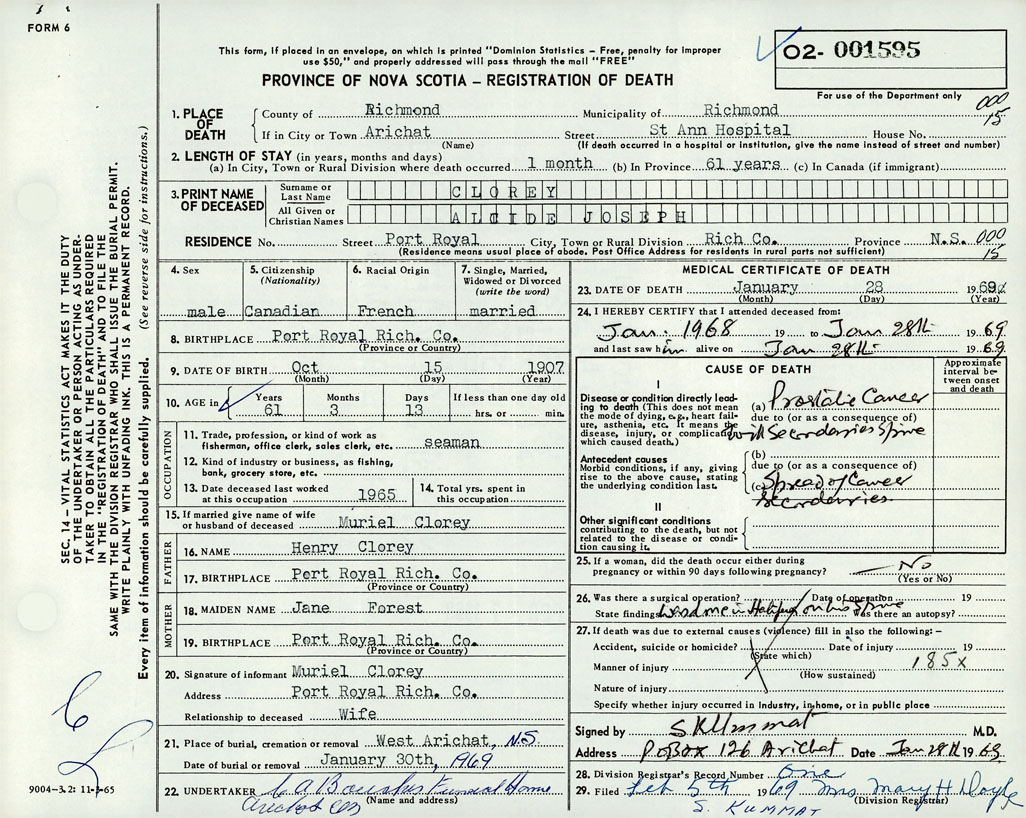 FORM 6
This form, if placed in an envelope, on which is printed "Dominion Statistics – Free, penalty for improper
use $50," and properly addressed will pass through the mail "FREE"
PROVINCE OF NOVA SCOTIA – REGISTRATION OF DEATH
O2- 001595
For use of the Department only
000
15
1. PLACE OF DEATH
County of Richmond Municipality of Richmond
If in City or Town Arichat Street St Ann Hospital House No.
(Name) (If death occurred in a hospital or institution, give the name instead of street and number)
2. LENGTH OF STAY (in years, months and days)
(a) In City, Town or Rural Division where death occurred 1 month (b) In Province 61 years (c) In Canada (if immigrant)
3. PRINT NAME OF DECEASED
Surname or Last Name CLOREY
All Given or Christian Names ALCIDE JOSEPH
RESIDENCE No. Street Port Royal City, Town or Rural Division Rich Co. Province N.S. 000
(Residence means usual place of abode. Post Office Address for residents in rural parts not sufficient) 15
4. Sex
male
5. Citizenship
(Nationality)
Canadian
6. Racial Origin
French
7. Single, Married,
Widowed or Divorced
(write the word)
married
8. BIRTHPLACE Port Royal Rich. Co.
(Province or Country)
9. DATE OF BIRTH Oct 15 1907
(Month) (Day) (Year)
10. AGE in
Years Months Days If less than one day old
61 3 13 hrs. or min.
OCCUPATION
11. Trade, profession, or kind of work as
fisherman, office clerk, sales clerk, etc. seaman
12. Kind of industry or business, as fishing,
bank, grocery store, etc.
13. Date deceased last worked
at this occupation 1965
14. Total yrs. spent in
this occupation
15. If married give name of wife
or husband of deceased Muriel Clorey
FATHER
16. NAME Henry Clorey
17. BIRTHPLACE Port Royal Rich. Co.
(Province or Country)
MOTHER
18. MAIDEN NAME Jane Forest
19. BIRTHPLACE Port Royal Rich. Co.
(Province or Country)
20. Signature of informant Muriel Clorey
Address Port Royal Rich. Co.
Relationship to deceased Wife
21. Place of burial, cremation or removal West Arichat, N.S.
Date of burial or removal January 30th, 1969
22. UNDERTAKER Funeral Home
(Name and address)
MEDICAL CERTIFICATE OF DEATH
23. DATE OF DEATH January 28 1969
(Month) (Day) (Year)
24. I HEREBY CERTIFY that I attended deceased from:
Jan. 1968 19 to Jan 28th 1969
and last saw him alive on Jan 28th 1969
CAUSE OF DEATH
Approximate
interval be-
tween onset
and death
I
Disease or condition directly lead-
ing to death (This does not mean
the mode of dying, e.g., heart fail-
ure, asthenia, etc. It means the
disease, injury, or complication
which caused death.)
(a) Prostatic Cancer
due to (or as a consequence of)
with Secondaries Spine
Antecedent causes
Morbid conditions, if any, giving
rise to the above cause, stating
the underlying condition last.
(b)
due to (or as a consequence of)
(c) Spread of Cancer
Secondaries
II
Other significant conditions
contributing to the death, but not
related to the disease or condi-
tion causing it.
25. If a woman, did the death occur either during
pregnancy or within 90 days following pregnancy? No
(Yes or No)
26. Was there a surgical operation? Date of operation 19
State findings in Halifax on his Spine Was there an autopsy?
27. If death was due to external causes (violence) fill in also the following: –
Accident, suicide or homicide? Date of injury 19
(State which)
185X
Manner of injury
(How sustained)
Nature of injury
Specify whether injury occurred in Industry, in home, or in public place
Signed by M.D.
Address PO Box 126 Arichat Date Jan 28th 1969
28. Division Registrar's Record Number One
29. Filed Feb 5th 1969 Mrs Mary H Doyle
(Division Registrar)
S. KUMMAT
SEC. 14 – VITAL STATISTICS ACT MAKES IT THE DUTY
OF THE UNDERTAKER OR PERSON ACTING AS UNDER-
TAKER TO OBTAIN ALL THE PARTICULARS REQUIRED
IN THE "REGISTRATION OF DEATH" AND TO FILE THE
SAME WITH THE DIVISION REGISTRAR WHO SHALL ISSUE THE BURIAL PERMIT.
WRITE PLAINLY WITH UNFADING INK. THIS IS A PERMANENT RECORD.
Every item of information should be carefully supplied. (See reverse side for instructions.)